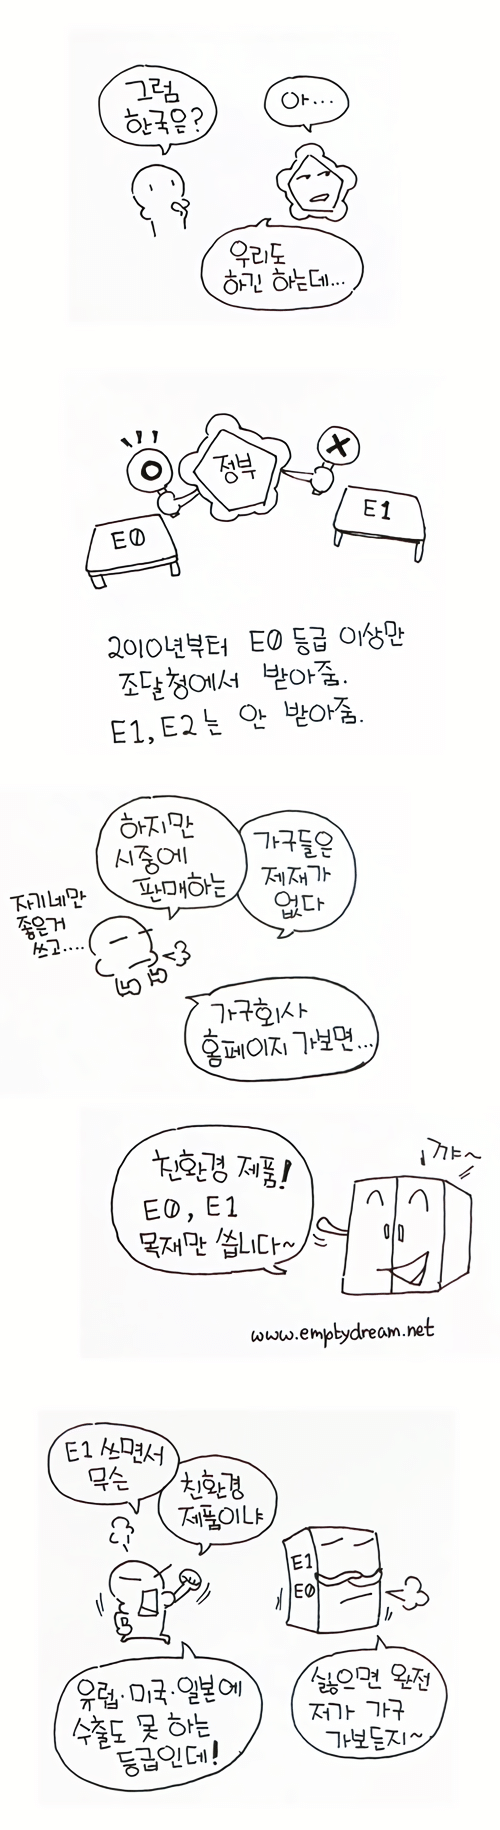 그럼
한국은?
아...
우리도
하긴 하는데...
정부
E0
E1
2010년부터 E0 등급 이상만
조달청에서 받아줌.
E1, E2는 안 받아줌.
하지만
시중에
판매하는
가구들은
제재가
없다
자기네만
좋은거
쓰고....
가구회사
홈페이지 가보면...
꺄~
친환경 제품!
E0, E1
목재만 씁니다~
www.emptydream.net
E1 쓰면서
무슨
친환경
제품이냐
E1
E0
유럽·미국·일본에
수출도 못 하는
등급인데!
싫으면 완전
저가 가구
가보든지~